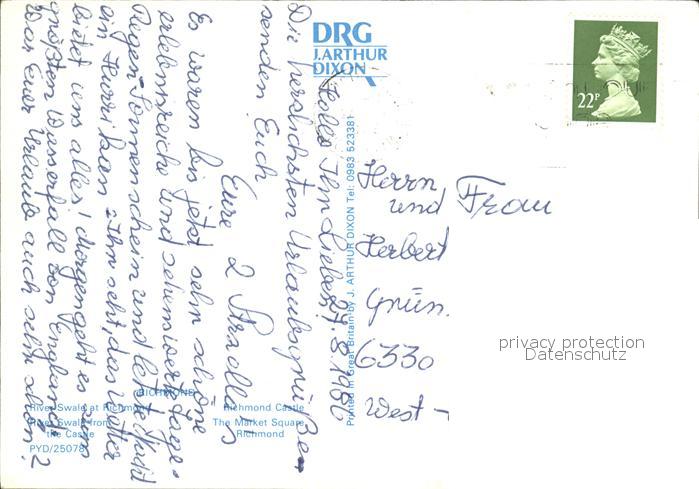 DRG
J.ARTHUR
DIXON
22P
Hallo Ihr Lieben! 27.8.1986
Die herzlichsten Urlaubsgrüße
senden Euch
Eure 2
Es waren bis jetzt sehr schöne
erlebnisreiche und sehenswerte Tage.
Regen-Sonnenschein und letzte Nacht
ein Hurrikan - Ihr seht, das Wetter
bietet uns alles! Morgen geht es zum
größten Wasserfall von England.
War Euer Urlaub auch sehr schön?
Printed in Great Britain by J. ARTHUR DIXON Tel: 0983 523381
Herrn
und Frau
Herbert
Grün.
6330
West-
privacy protection
Datenschutz
RICHMOND
River Swale at Richmond
Richmond Castle
River Swale from
the Castle
The Market Square
Richmond
PYD/25078